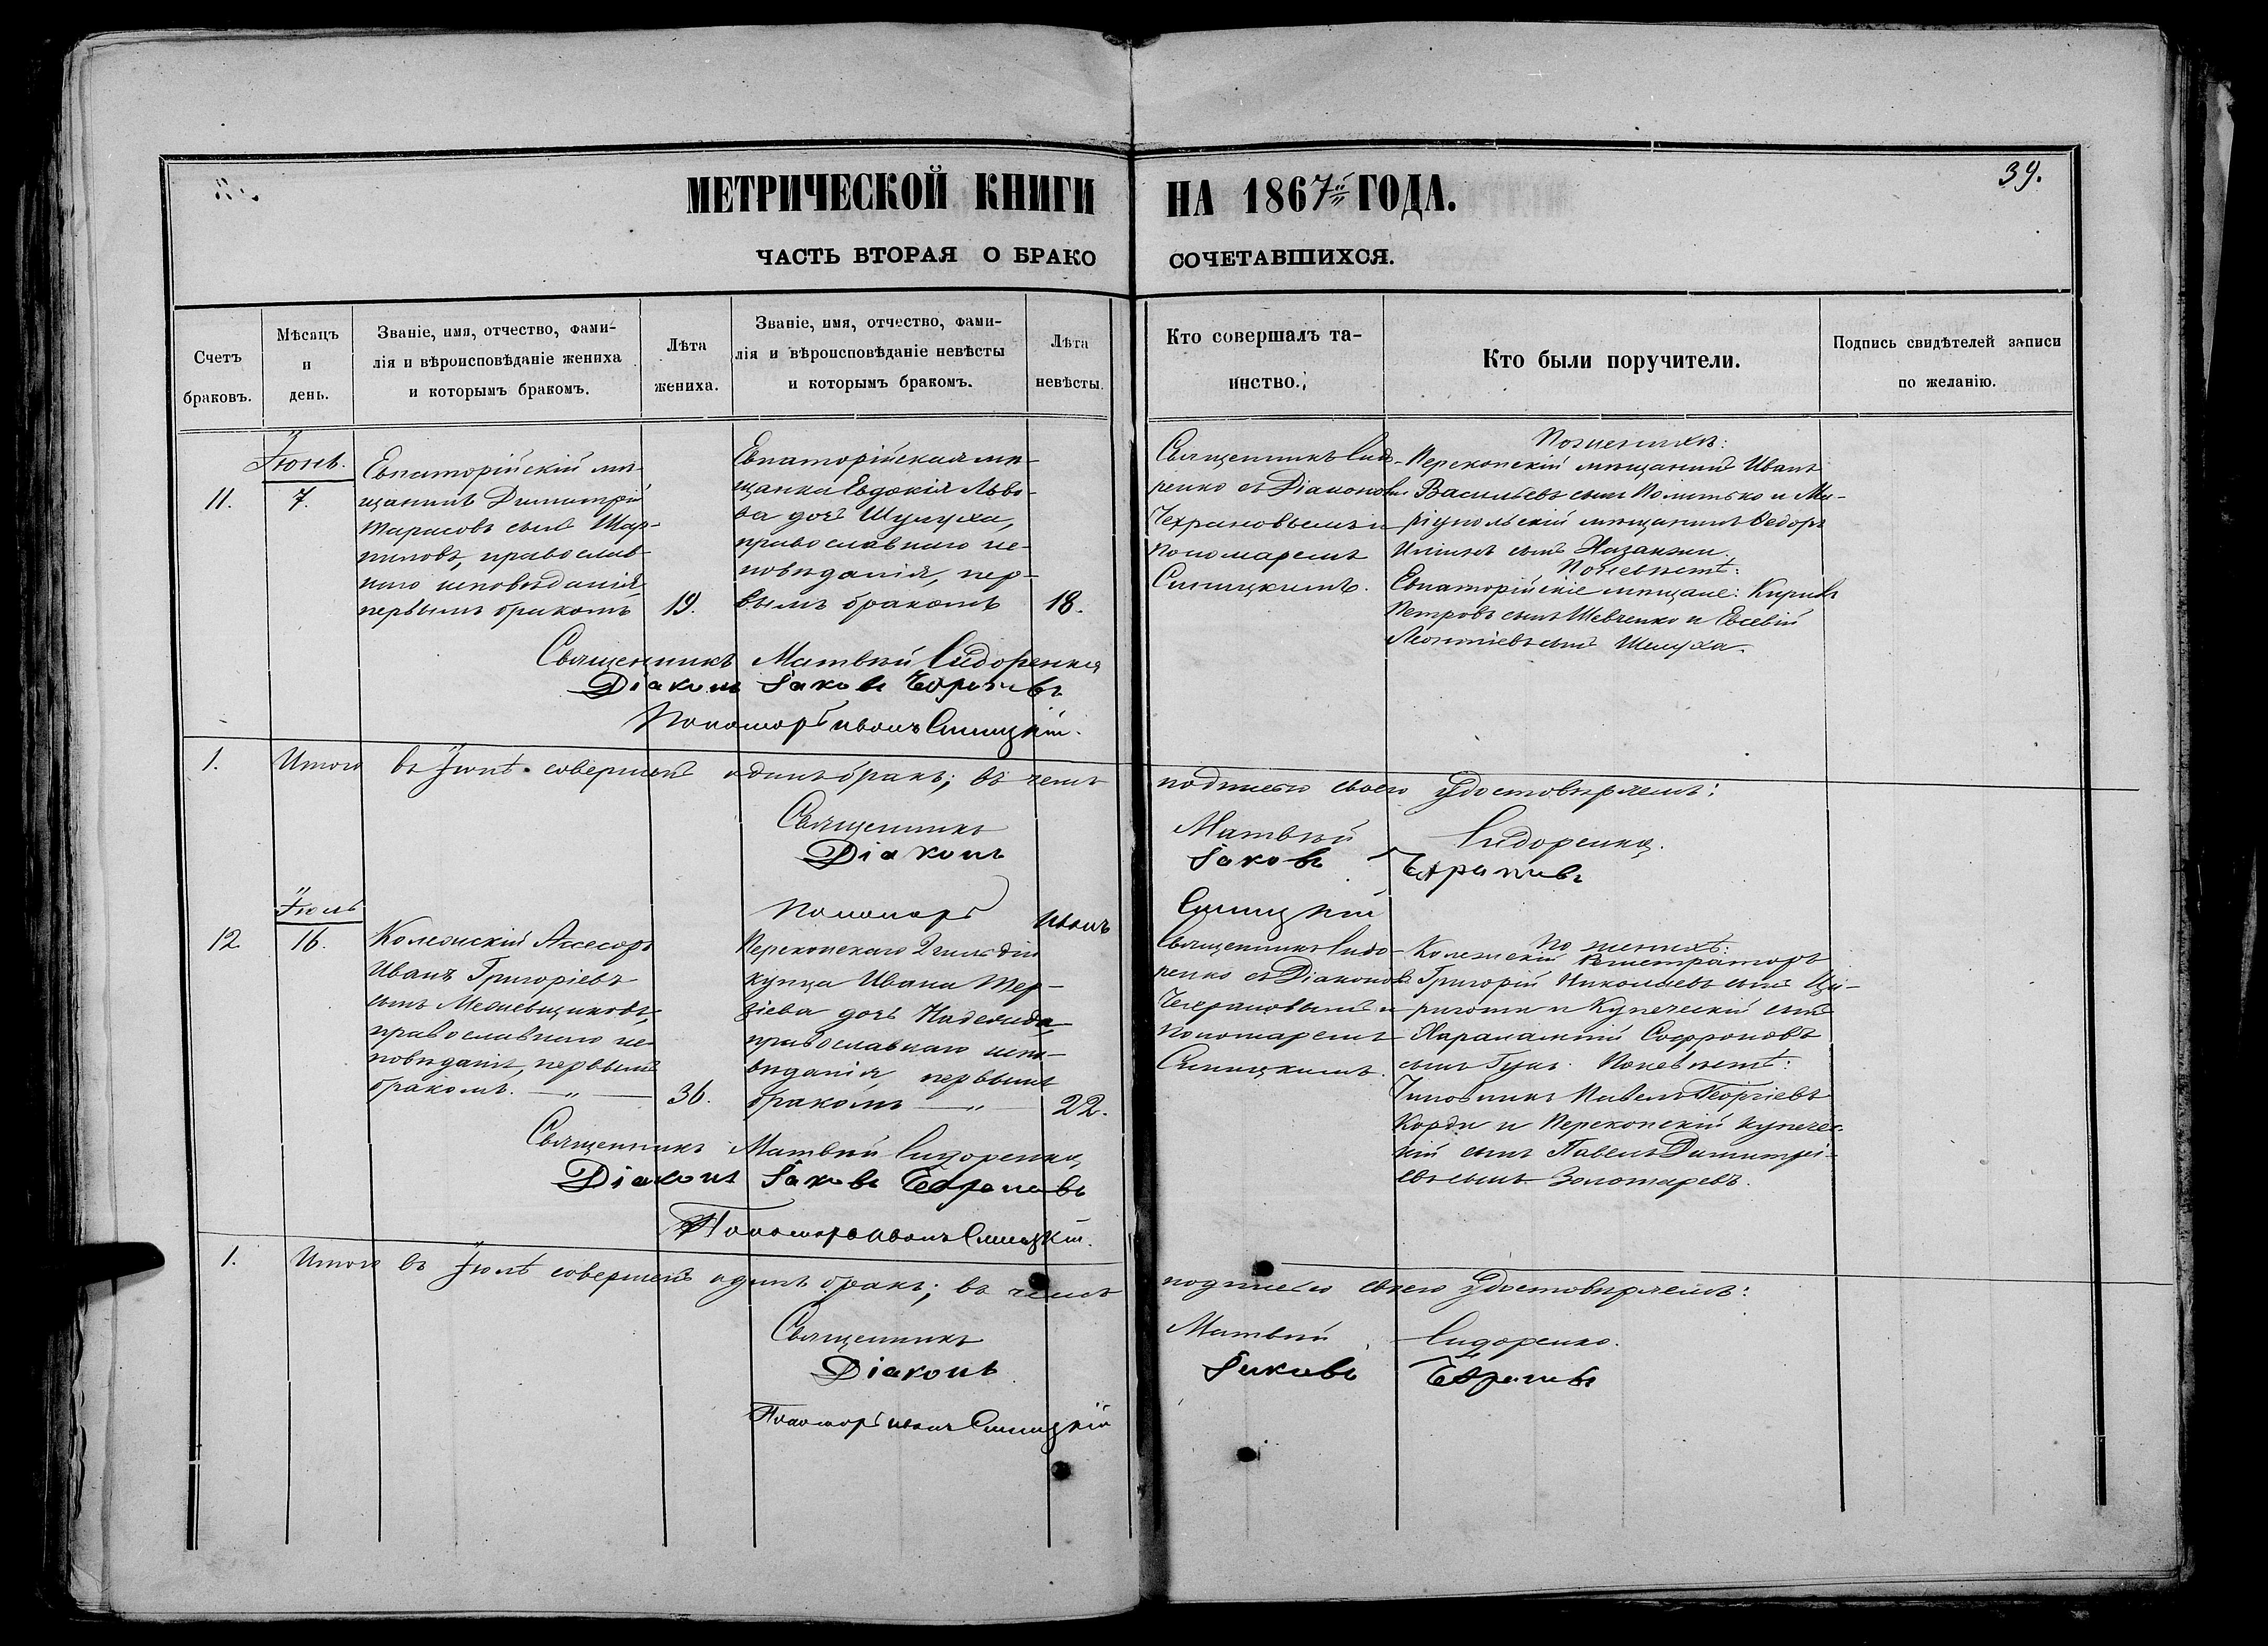 39.
МЕТРИЧЕСКОЙ КНИГИ НА 1867й ГОДА.
ЧАСТЬ ВТОРАЯ О БРАКО СОЧЕТАВШИХСЯ.
Счетъ
браковъ.
Мѣсяцъ
и
день.
Званіе, имя, отчество, фами-
лія и вѣроисповѣданіе жениха
и которымъ бракомъ.
Лѣта
жениха.
Званіе, имя, отчество, фами-
лія и вѣроисповѣданіе невѣсты
и которымъ бракомъ.
Лѣта
невѣсты.
Кто совершалъ та-
инство.
Кто были поручители.
Подпись свидѣтелей записи
по желанію.
11.
Іюнь.
7.
Евпаторійскій мѣ-
щанинъ Димитрій
Тарасовъ сынъ
православ-
наго исповѣданія,
первымъ бракомъ
19.
Евпаторійская мѣ-
щанка Евдокія Льво-
ва дочь
православнаго ис-
повѣданія, пер-
вымъ бракомъ
18.
Священникъ Сидо-
ренко съ Діакономъ
и
пономаремъ
Синицкимъ.
По женихѣ:
Перекопскій мѣщанинъ Иванъ
Васильевъ сынъ и Ма-
ріупольскій мѣщанинъ Ѳедоръ
Ильинъ сынъ
По невѣстѣ:
Евпаторійскіе мѣщане: Кирилъ
Петровъ сынъ Шевченко и Евсевій
Леонтіевъ сынъ Шелуха.
Священникъ Матвѣй Сидоренко
Діаконъ Іаковъ
Пономарь Иванъ Синицкій.
1. Итого въ Іюнѣ совершенъ одинъ бракъ; въ чемъ подписью своею удостовѣряемъ:
Священникъ Матвѣй Сидоренко.
Діаконъ Іаковъ
Пономарь Иванъ Синицкій
12
Іюль
16.
Колежскій Ассесоръ
Иванъ Григоріевъ
сынъ
православнаго ис-
повѣданія, первымъ
бракомъ. — „ —
36.
Перекопскаго 2 гильдіи
купца Ивана Тер-
зіева дочь Надежда,
православнаго испо-
вѣданія, первымъ
бракомъ — „ —
22.
Священникъ Сидо-
ренко съ Діакономъ
и
пономаремъ
Синицкимъ.
По женихѣ:
Колежскій Регистраторъ
Григорій Николаевъ сынъ Ци-
риготи и Купеческій сынъ
Харалампій Софроновъ
сынъ По невѣстѣ:
Чиновникъ Павелъ Георгіевъ
Корди и Перекопскій купечес-
кій сынъ Павелъ Димитрі-
евъ сынъ Золотаревъ.
Священникъ Матвѣй Сидоренко
Діаконъ Іаковъ
Пономарь Иванъ Синицкій.
1. Итого въ Іюлѣ совершенъ одинъ бракъ; въ чемъ подписью своею удостовѣряемъ:
Священникъ Матвѣй Сидоренко.
Діаконъ Іаковъ
Пономарь Иванъ Синицкій